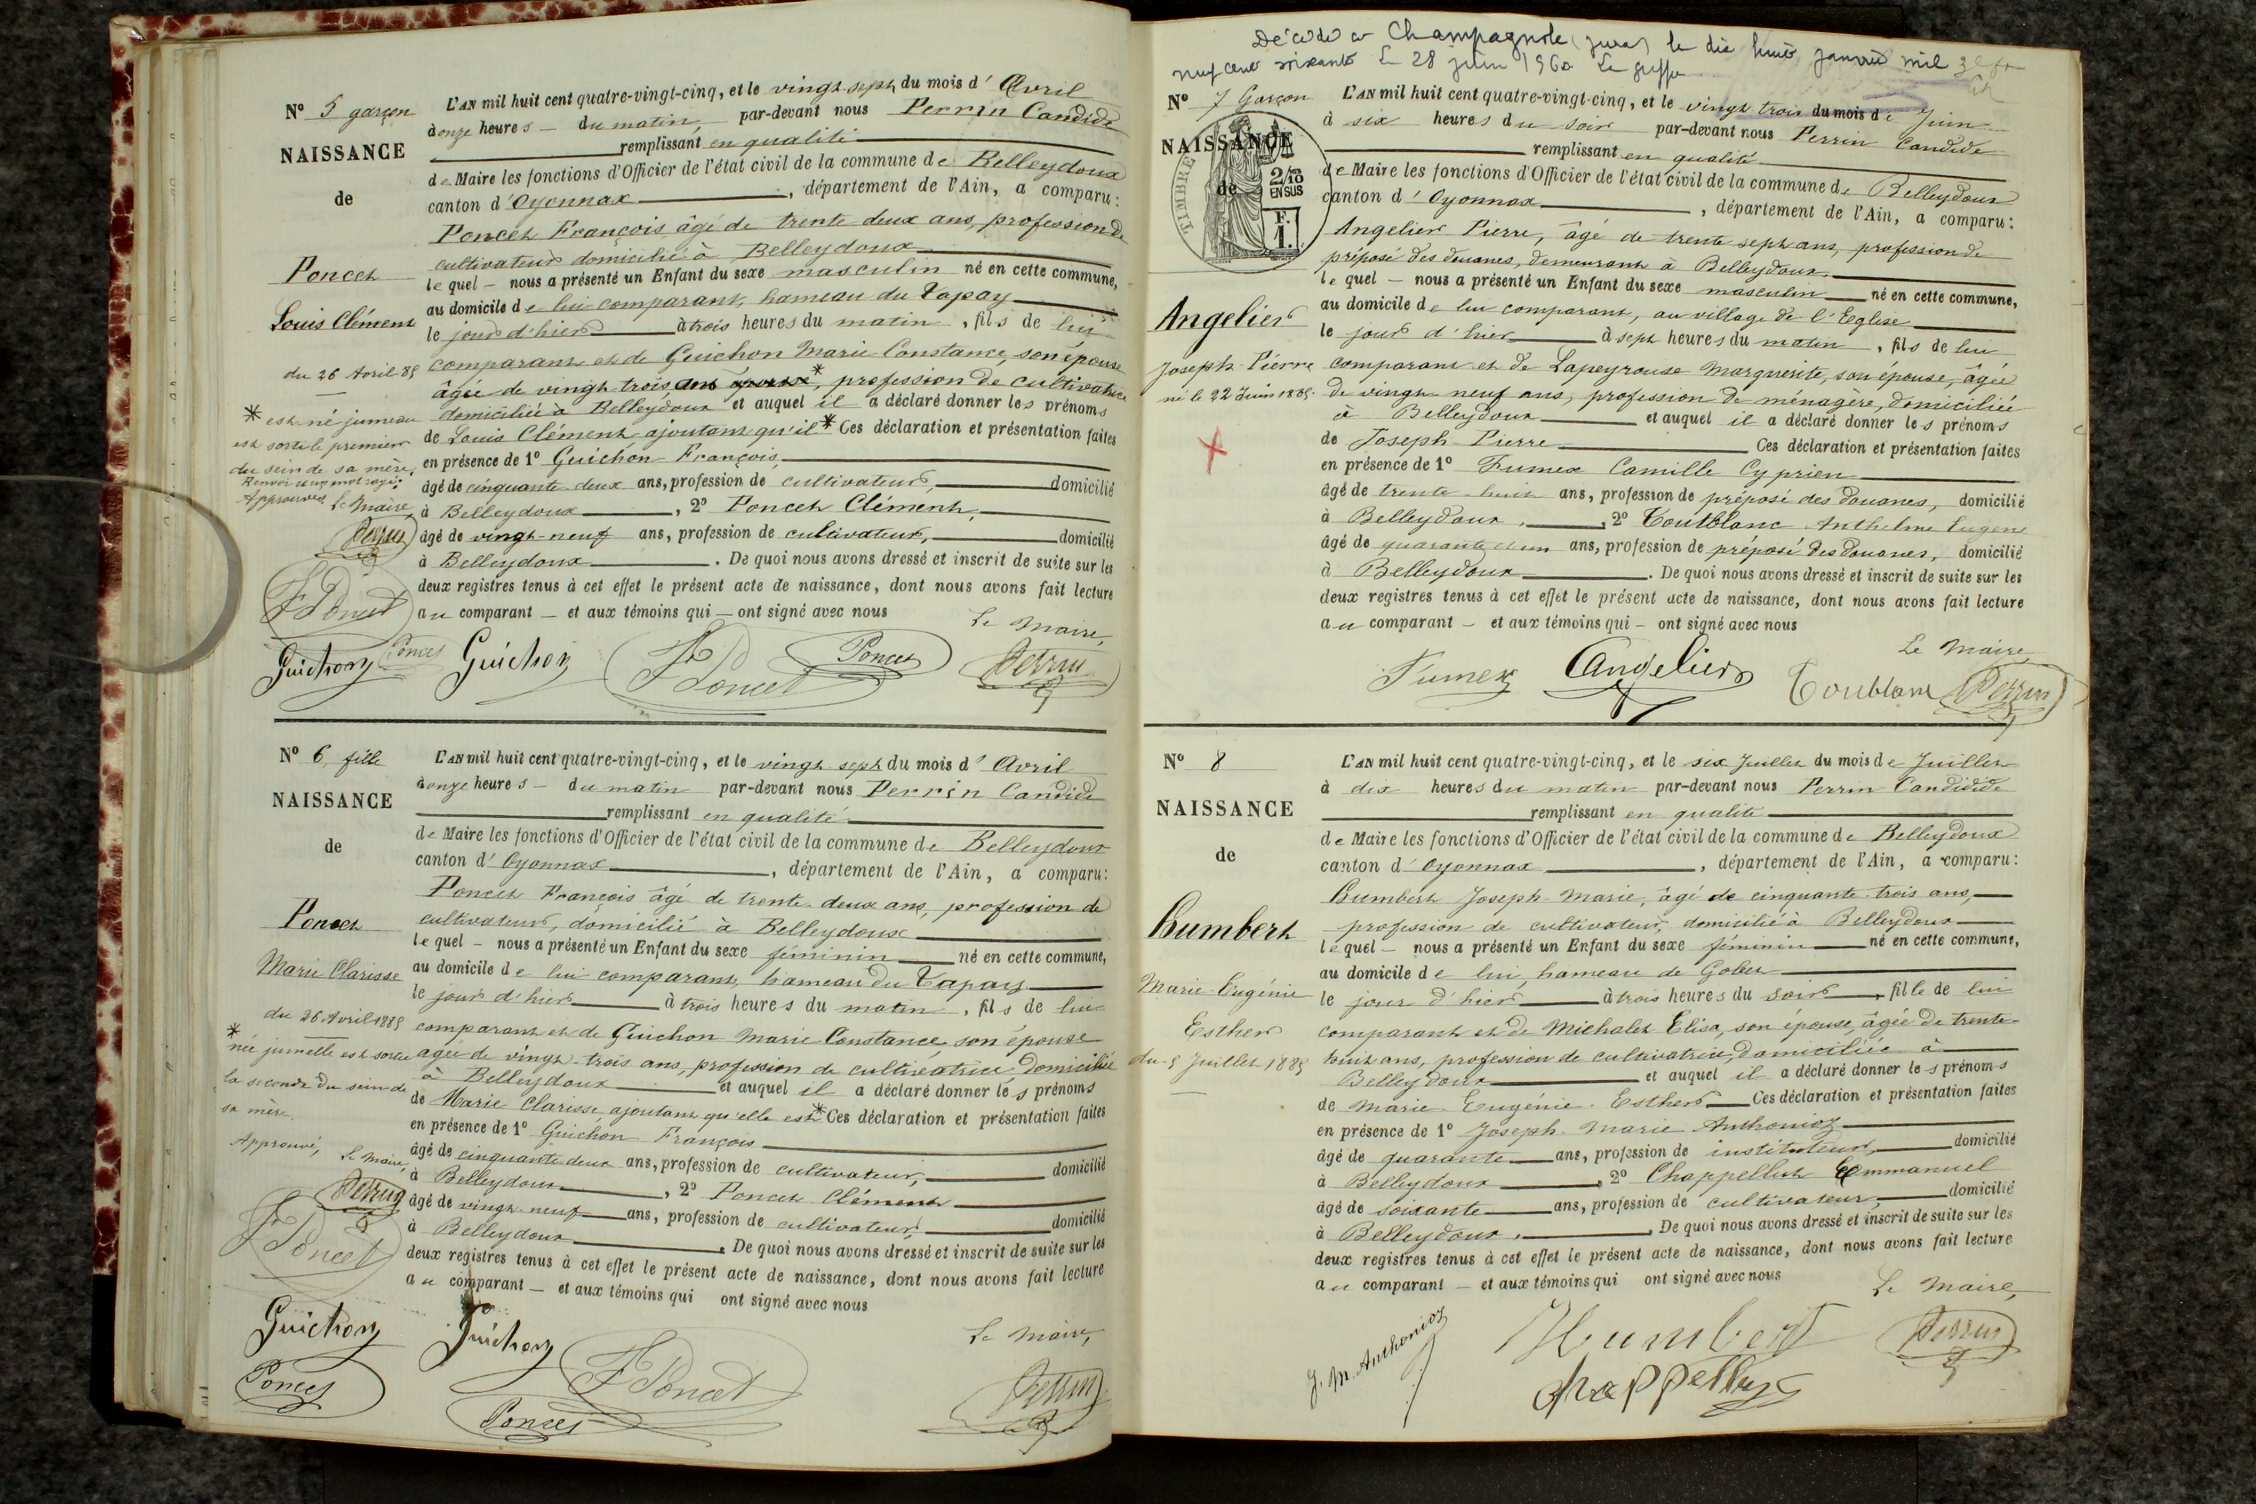 N° 5 garçon
NAISSANCE
de
Poncet
Louis Clément
du 26 Avril 85
* est né jumeau
est sorti le premier
du sein de sa mère.
Approuvés Le Maire
Perrin
F Poncet
L'AN mil huit cent quatre-vingt-cinq, et le vingt sept du mois d'Avril
à onze heures du matin, par-devant nous Perrin Candide
remplissant en qualité
de Maire les fonctions d'Officier de l'état civil de la commune de Belleydoux
canton d'Oyonnax, département de l'Ain, a comparu:
Poncet François âgé de trente deux ans, profession de
cultivateur domicilié à Belleydoux
lequel nous a présenté un Enfant du sexe masculin né en cette commune,
au domicile de lui comparant, hameau du Tapay
le jour d'hier à trois heures du matin, fils de lui
comparant et de Guichon Marie Constance, son épouse
âgée de vingt-trois ans *, profession de cultivatrice
domiciliée à Belleydoux et auquel il a déclaré donner les prénoms
de Louis Clément, ajoutant qu'il * Ces déclaration et présentation faites
en présence de 1° Guichon François,
âgé de cinquante deux ans, profession de cultivateur, domicilié
à Belleydoux, 2° Poncet Clément,
âgé de vingt-neuf ans, profession de cultivateur, domicilié
à Belleydoux. De quoi nous avons dressé et inscrit de suite sur les
deux registres tenus à cet effet le présent acte de naissance, dont nous avons fait lecture
au comparant et aux témoins qui ont signé avec nous
Le Maire,
Guichon Poncet Guichon F Poncet Poncet Perrin
N° 6 fille
NAISSANCE
de
Poncet
Marie Clarisse
du 26 Avril 1885
* née jumelle est sortie
la seconde du sein de
sa mère.
Approuvé, Le Maire,
Perrin
F Poncet
L'AN mil huit cent quatre-vingt-cinq, et le vingt sept du mois d'Avril
à onze heures du matin par-devant nous Perrin Candide
remplissant en qualité
de Maire les fonctions d'Officier de l'état civil de la commune de Belleydoux
canton d'Oyonnax, département de l'Ain, a comparu:
Poncet François âgé de trente deux ans, profession de
cultivateur, domicilié à Belleydoux
lequel nous a présenté un Enfant du sexe féminin né en cette commune,
au domicile de lui comparant, hameau du Tapay
le jour d'hier à trois heures du matin, fils de lui
comparant et de Guichon Marie Constance, son épouse
âgée de vingt-trois ans, profession de cultivatrice domiciliée
à Belleydoux et auquel il a déclaré donner les prénoms
de Marie Clarisse, ajoutant qu'elle est * Ces déclaration et présentation faites
en présence de 1° Guichon François
âgé de cinquante deux ans, profession de cultivateur, domicilié
à Belleydoux, 2° Poncet Clément
âgé de vingt-neuf ans, profession de cultivateur, domicilié
à Belleydoux. De quoi nous avons dressé et inscrit de suite sur les
deux registres tenus à cet effet le présent acte de naissance, dont nous avons fait lecture
au comparant et aux témoins qui ont signé avec nous
Le Maire,
Guichon Guichon F Poncet
Poncet Poncet Perrin
Décédé à Champagnole (Jura) le dix huit janvier mil
neuf cent soixante Le 28 juin 1960 Le greffier
N° 7 Garçon
NAISSANCE
de
TIMBRE
2/10 EN SUS
F. 1.
Angelier
Joseph Pierre
né le 22 Juin 1885.
L'AN mil huit cent quatre-vingt-cinq, et le vingt trois du mois de Juin
à six heures du soir par-devant nous Perrin Candide
remplissant en qualité
de Maire les fonctions d'Officier de l'état civil de la commune de Belleydoux
canton d'Oyonnax, département de l'Ain, a comparu:
Angelier Pierre, âgé de trente sept ans, profession de
préposé des douanes, demeurant à Belleydoux
lequel nous a présenté un Enfant du sexe masculin né en cette commune,
au domicile de lui comparant, au village de l'Eglise
le jour d'hier à sept heures du matin, fils de lui
comparant et de Lapeyrouse Marguerite, son épouse, âgée
de vingt neuf ans, profession de ménagère, domiciliée
à Belleydoux et auquel il a déclaré donner les prénoms
de Joseph Pierre Ces déclaration et présentation faites
en présence de 1° Fumex Camille Cyprien
âgé de trente-huit ans, profession de préposé des douanes, domicilié
à Belleydoux, 2° Toutblanc Anthelme Eugène
âgé de quarante et un ans, profession de préposé des douanes, domicilié
à Belleydoux. De quoi nous avons dressé et inscrit de suite sur les
deux registres tenus à cet effet le présent acte de naissance, dont nous avons fait lecture
au comparant et aux témoins qui ont signé avec nous
Le Maire,
Fumex Angelier Toutblanc Perrin
N° 8
NAISSANCE
de
Humbert
Marie Eugénie
Esther
du 5 Juillet 1885
L'AN mil huit cent quatre-vingt-cinq, et le six Juillet du mois de Juillet
à dix heures du matin par-devant nous Perrin Candidide
remplissant en qualité
de Maire les fonctions d'Officier de l'état civil de la commune de Belleydoux
canton d'Oyonnax, département de l'Ain, a comparu:
Humbert Joseph-Marie, âgé de cinquante-trois ans,
profession de cultivateur, domicilié à Belleydoux
lequel nous a présenté un Enfant du sexe féminin né en cette commune,
au domicile de lui, hameau de Gobet
le jour d'hier à trois heures du soir, fille de lui
comparant et de Michalet Elisa, son épouse, âgée de trente-
huit ans, profession de cultivatrice, domiciliée à
Belleydoux et auquel il a déclaré donner les prénoms
de Marie-Eugénie-Esther Ces déclaration et présentation faites
en présence de 1° Joseph Marie Anthonioz
âgé de quarante ans, profession de instituteur, domicilié
à Belleydoux, 2° Chappelluz Emmanuel
âgé de soixante ans, profession de cultivateur, domicilié
à Belleydoux. De quoi nous avons dressé et inscrit de suite sur les
deux registres tenus à cet effet le présent acte de naissance, dont nous avons fait lecture
au comparant et aux témoins qui ont signé avec nous
Le Maire,
J. M. Anthonioz Humbert Perrin
Chappelluz